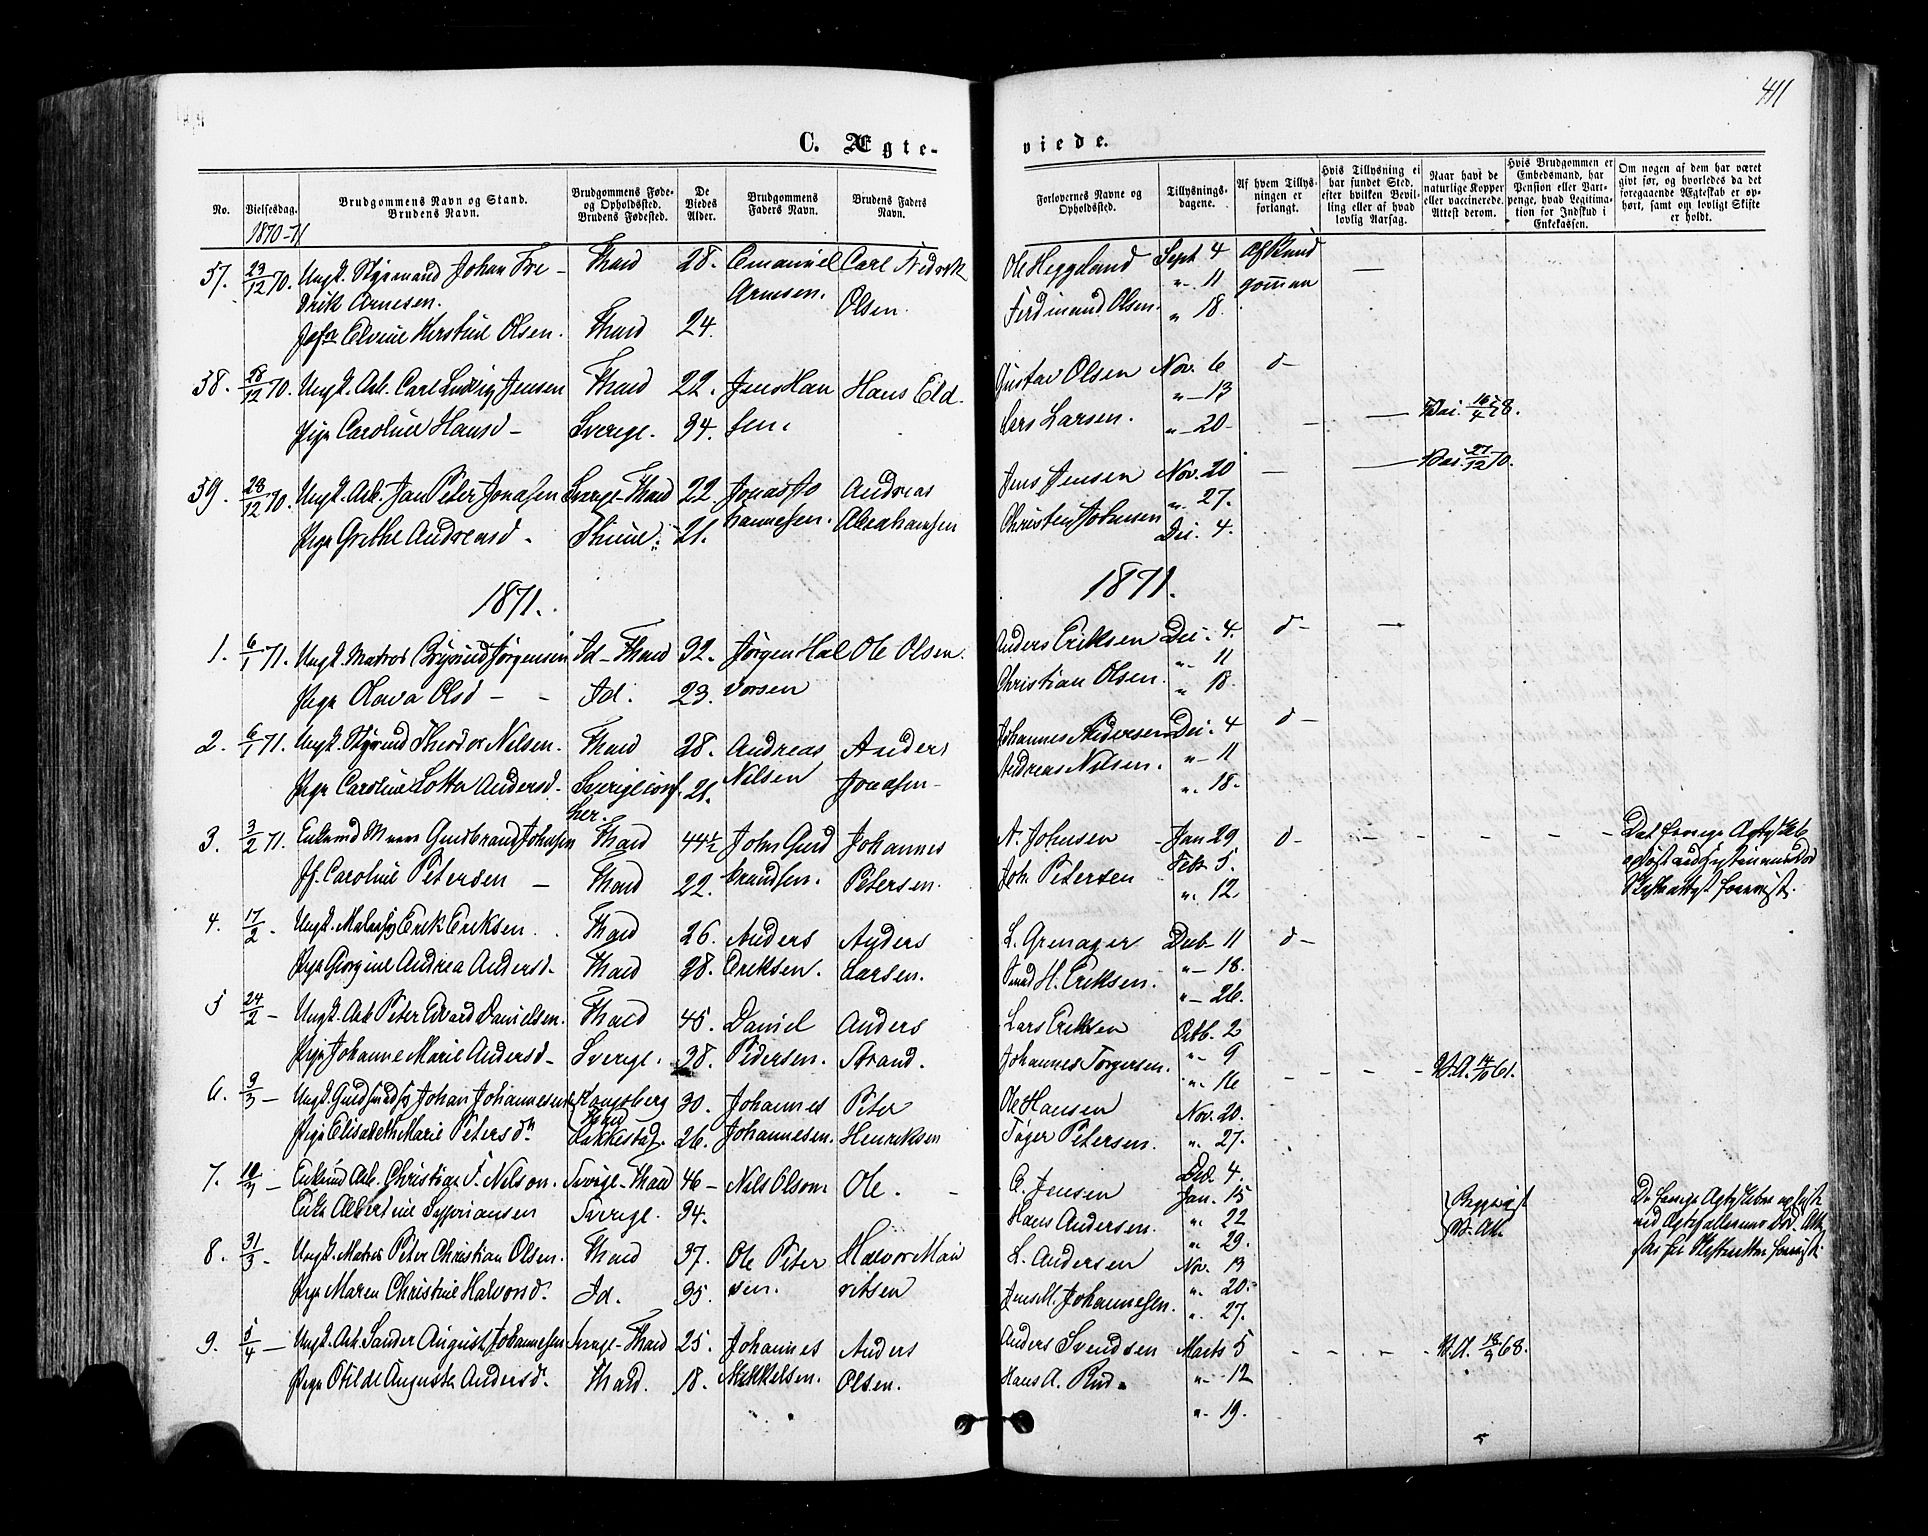 411
C. Ægte-
viede.
No.
Vielsesdag.
Brudgommens Navn og Stand.
Brudens Navn.
Brudgommens Føde-
og Opholdssted.
Brudens Fødested.
De
Viedes
Alder.
Brudgommens
Faders Navn.
Brudens Faders
Navn.
Forlovernes Navne og
Opholdssted.
Tillysnings-
dagene.
Af hvem Tillys-
ningen er
forlangt.
Hvis Tillysning ei
har fundet Sted,
efter hvilken Bevil-
ling eller af hvad
lovlig Aarsag.
Naar havt de
naturlige Kopper
eller vaccinerede.
Attest derom.
Hvis Brudgommen er
Embedsmand, har
Pension eller Vart-
penge, hvad Legitima-
tion for Indskud i
Enkekassen.
Om nogen af dem har været
gift før, og hvorledes da det
foregaaende Ægteskab er op-
hørt, samt om lovligt Skifte
er holdt.
1870-71
57. 23/12 70. Ungk. Styrmand Johan Fre- Fhald 28. Emanuel Carl Fredrik Ole Heggeland Sept 4 af Brud
drik Arnesen. Arnesen. Olsen. Ferdinand Olsen. " 11 gommen
Jfr Elvine Kirstine Olsen. Fhald 24. " 18.
58. 28/12 70. Ungk. Arb. Carl Ludvig Jensen Fhald 22. Jens Han Hans Eld. Gustav Olsen Nov. 6 d-
" 13
Pige Caroline Hansd - Sverige. 34. sen. Lars Larsen. " 20 16/4 58.
27/12 70.
59. 28/12 70. Ungk. Arb. Jan Peter Jonasen Sverige-Fhald 22. Jonas Jo Andreas Jens Jensen Nov. 20
hannesen. Abrahamsen " 27.
Pige Grethe Andreasd - 21. Christen Johnsen Dec. 4.
1871. 1871.
1. 6/1 71. Ungk. Matros Jørgensen Id-Fhald 32. Jørgen Hal Ole Olsen. Anders Eriksen Dec. 4. d-
" 11
Pige Olava Olsd - Id. 23. vorsen Christian Olsen. " 18.
2. 6/1 71. Ungk. Styrmd Theodor Nilsen. Fhald 28. Andreas Anders Johannes Andersen Dec. 4 d-
Nilsen Jonasen Andreas Nilsen. " 11
Pige Caroline Lotta Andersd. Sverige conf. 21. " 18.
her.
3. 3/2 71. Enkemd Gudbrand Johnsen Fhald 44½ John Gud Johannes N. Johnsen Jan 29 d- Det forrige Ægteskab
Jf. Caroline Petersen Fhald 22. brandsen. Petersen. Joh. Petersen Feb. 5.
" 12.
4. 17/2 - Ungk. Erik Eriksen. Fhald 26. Anders Anders L. Grenager Deb 11 d-
Pige Georgine Andrea Andersd. Fhald 28. Eriksen. Larsen. H. Eriksen. " 18.
" 26.
5 24/2 - Ungk. Arb Peter Edvard Danielsen. Fhald 45. Daniel Anders Lars Eriksen Octb. 2
Pige Johanne Marie Andersd - Sverige. 38. Pedersen. Strand. Johannes Torgersen. " 9
" 16 V.A. 14/10 61.
6. 3/3 - Ungk. Guldsmedsv Johan Johannesen Kongsberg 30. Johannes Peter Ole Hansen Nov. 20.
Fhald
Pige Elisabeth Marie Petersdn Rakkestad. 26. Johannesen. Henriksen Tøger Petersen. " 27.
Dec. 4.
7. 10/3 - Enkemd Arb. Christian F. Nilson. Sverige-Fhald 46 - Nils Olson Ole. C. Jensen Jan. 15 De forrige Ægteskaber
Enke Albertine Syversen Sverige. 34. Hans Andersen. " 22
" 29.
8. 31/3 - Ungk. Matros Peter Christian Olsen. Fhald 37. Ole Peter Halvor Mau L. Andersen Nov. 13
Pige Maren Christine Halvorsd. Id. 35. sen. ritsen Jens M. Johannesen. " 20.
" 27.
9. 5/4 - Ungk. Arb. Sander August Johannesen Sverige-Fhald 25. Johannes Anders Anders Svendsen Marts 5 V.A. 18/9 68.
Pige Otilde Augusta Andersd. Fhald. 18. Mikkelsen. Olsen. Hans A. Rud. " 12
" 19.